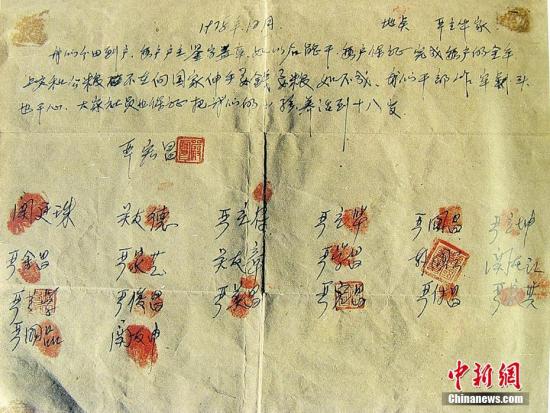 1978年12月 地点 严立华家
我们分田到户，每户户主签字盖章，如以后能干，每户保证完成每户的全年
上交和公粮，不在向国家伸手要钱要粮，如不成，我们干部作牢刹头
也干心，大家社员也保证把我们的小孩养活到十八岁
严宏昌
关廷珠 关友德 严立符 严立华 严国昌 严立坤
严金昌 严家芝 关友章 严学昌 韩国云 关友江
严立学 严俊昌 严美昌 严宏昌 严付昌 严家其
严国品 关友申
中新网
CHINANEWS.COM